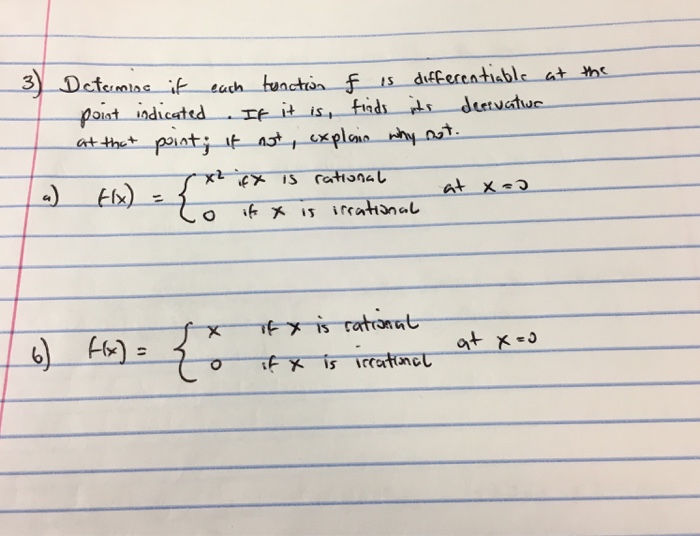 3) Determine if each function f is differentiable at the
point indicated. If it is, finds its derivative
at that point; if not, explain why not.
a) f(x) = { x² if x is rational
0 if x is irrational
at x=0
b) f(x) = { x if x is rational
0 if x is irrational
at x=0